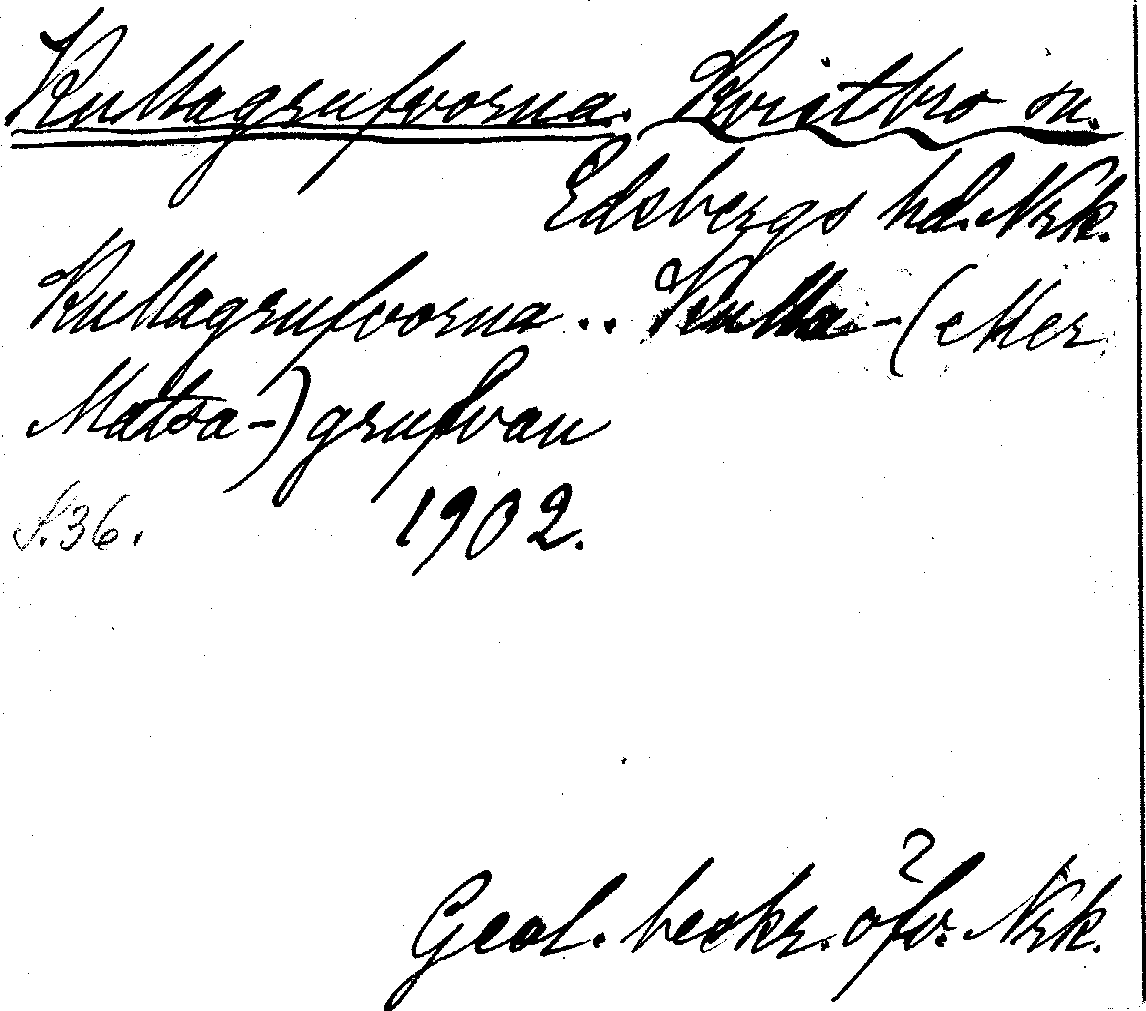 Kullagrufvorna. Kvistbro sn.
Edsbergs hd. Nrk.
Kullagrufvorna .. Kulla- (eller
Matsa-) grufvan
S. 36. 1902.
Geol. beskr. öfv. Nrk.